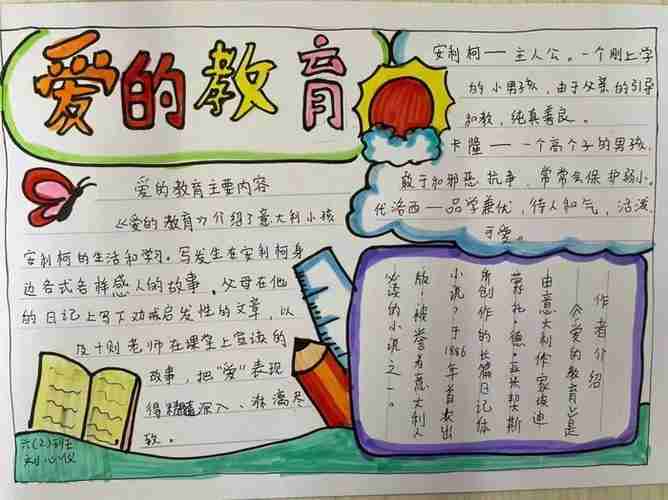 爱的教育
安利柯——主人公。一个刚上学
的小男孩,由于父亲的引导
和教,纯真善良。
卡隆——一个高个子的男孩,
敢于和邪恶抗争,常常会保护弱小。
代洛西——品学兼优,待人和气,活泼
可爱。
爱的教育主要内容
《爱的教育》介绍了意大利小孩
安利柯的生活和学习。写发生在安利柯身
边各式各样感人的故事,父母在他
的日记上写下劝诫启发性的文章,以
及十则老师在课堂上宣读的
故事,把“爱”表现
得精髓深入、淋漓尽
致。
作者介绍
《爱的教育》是
由意大利作家埃迪
蒙托·德·亚米契斯
所创作的长篇日记体
小说,于1886年首次出
版,被誉为意大利人
必读的小说之一。
六(2)班
刘心仪